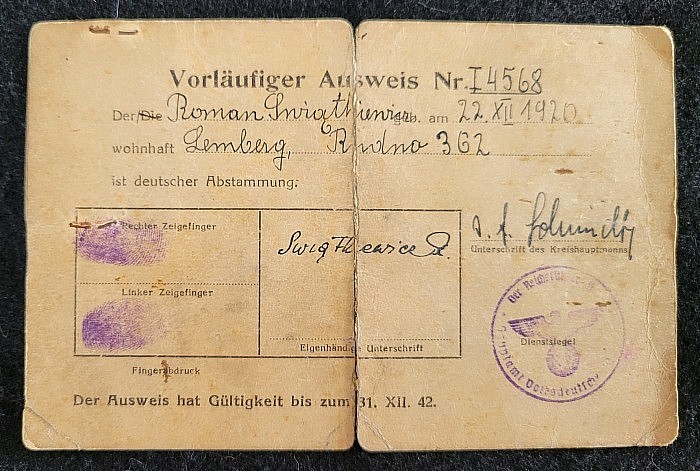 Vorläufiger Ausweis Nr. I 4568
Der/Die Roman Swigthiewicz geb. am 22. XII 1920
wohnhaft Lemberg, Rudno 362
ist deutscher Abstammung.
Rechter Zeigefinger
Linker Zeigefinger
Fingerabdruck
Eigenhändige Unterschrift
Unterschrift des Kreishauptmanns
Dienstsiegel
Der Ausweis hat Gültigkeit bis zum 31. XII. 42.